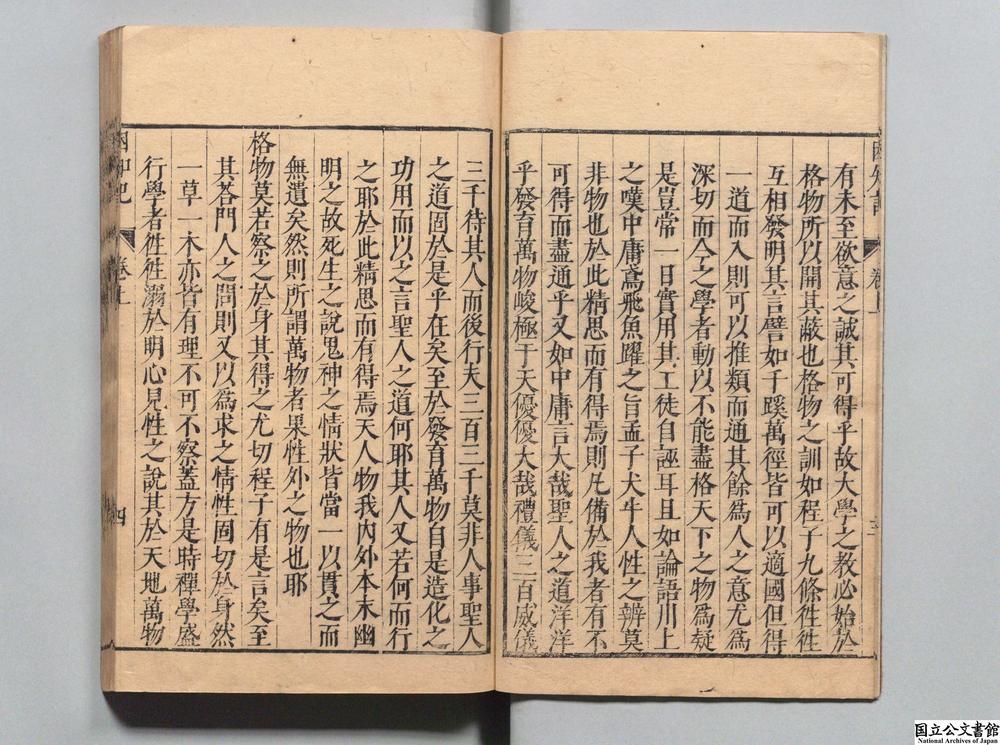 有未至欲意之誠其可得乎故大學之教必始於
格物所以開其蔽也格物之訓如程子九條徃徃
互相發明其言譬如千蹊萬徑皆可以適國但得
一道而入則可以推類而通其餘為人之意尤為
深切而今之學者動以不能盡格天下之物為疑
是豈常一日實用其工徒自誣耳且如論語川上
之嘆中庸鳶飛魚躍之旨孟子犬牛人性之辨莫
非物也於此精思而有得焉則凡備於我者有不
可得而盡通乎又如中庸言大哉聖人之道洋洋
乎發育萬物峻極于天優優大哉禮儀三百威儀
三千待其人而後行夫三百三千莫非人事聖人
之道固於是乎在矣至於發育萬物自是造化之
功用而以之言聖人之道何耶其人又若何而行
之耶於此精思而有得焉天人物我内外本末幽
明之故死生之說鬼神之情狀皆當一以貫之而
無遺矣然則所謂萬物者果性外之物也耶
格物莫若察之於身其得之尤切程子有是言矣至
其荅門人之問則又以爲求之情性固切於身然
一草一木亦皆有理不可不察蓋方是時禪學盛
行學者徃徃溺於明心見性之說其於天地萬物
困知記
卷上
四
国立公文書館
National Archives of Japan